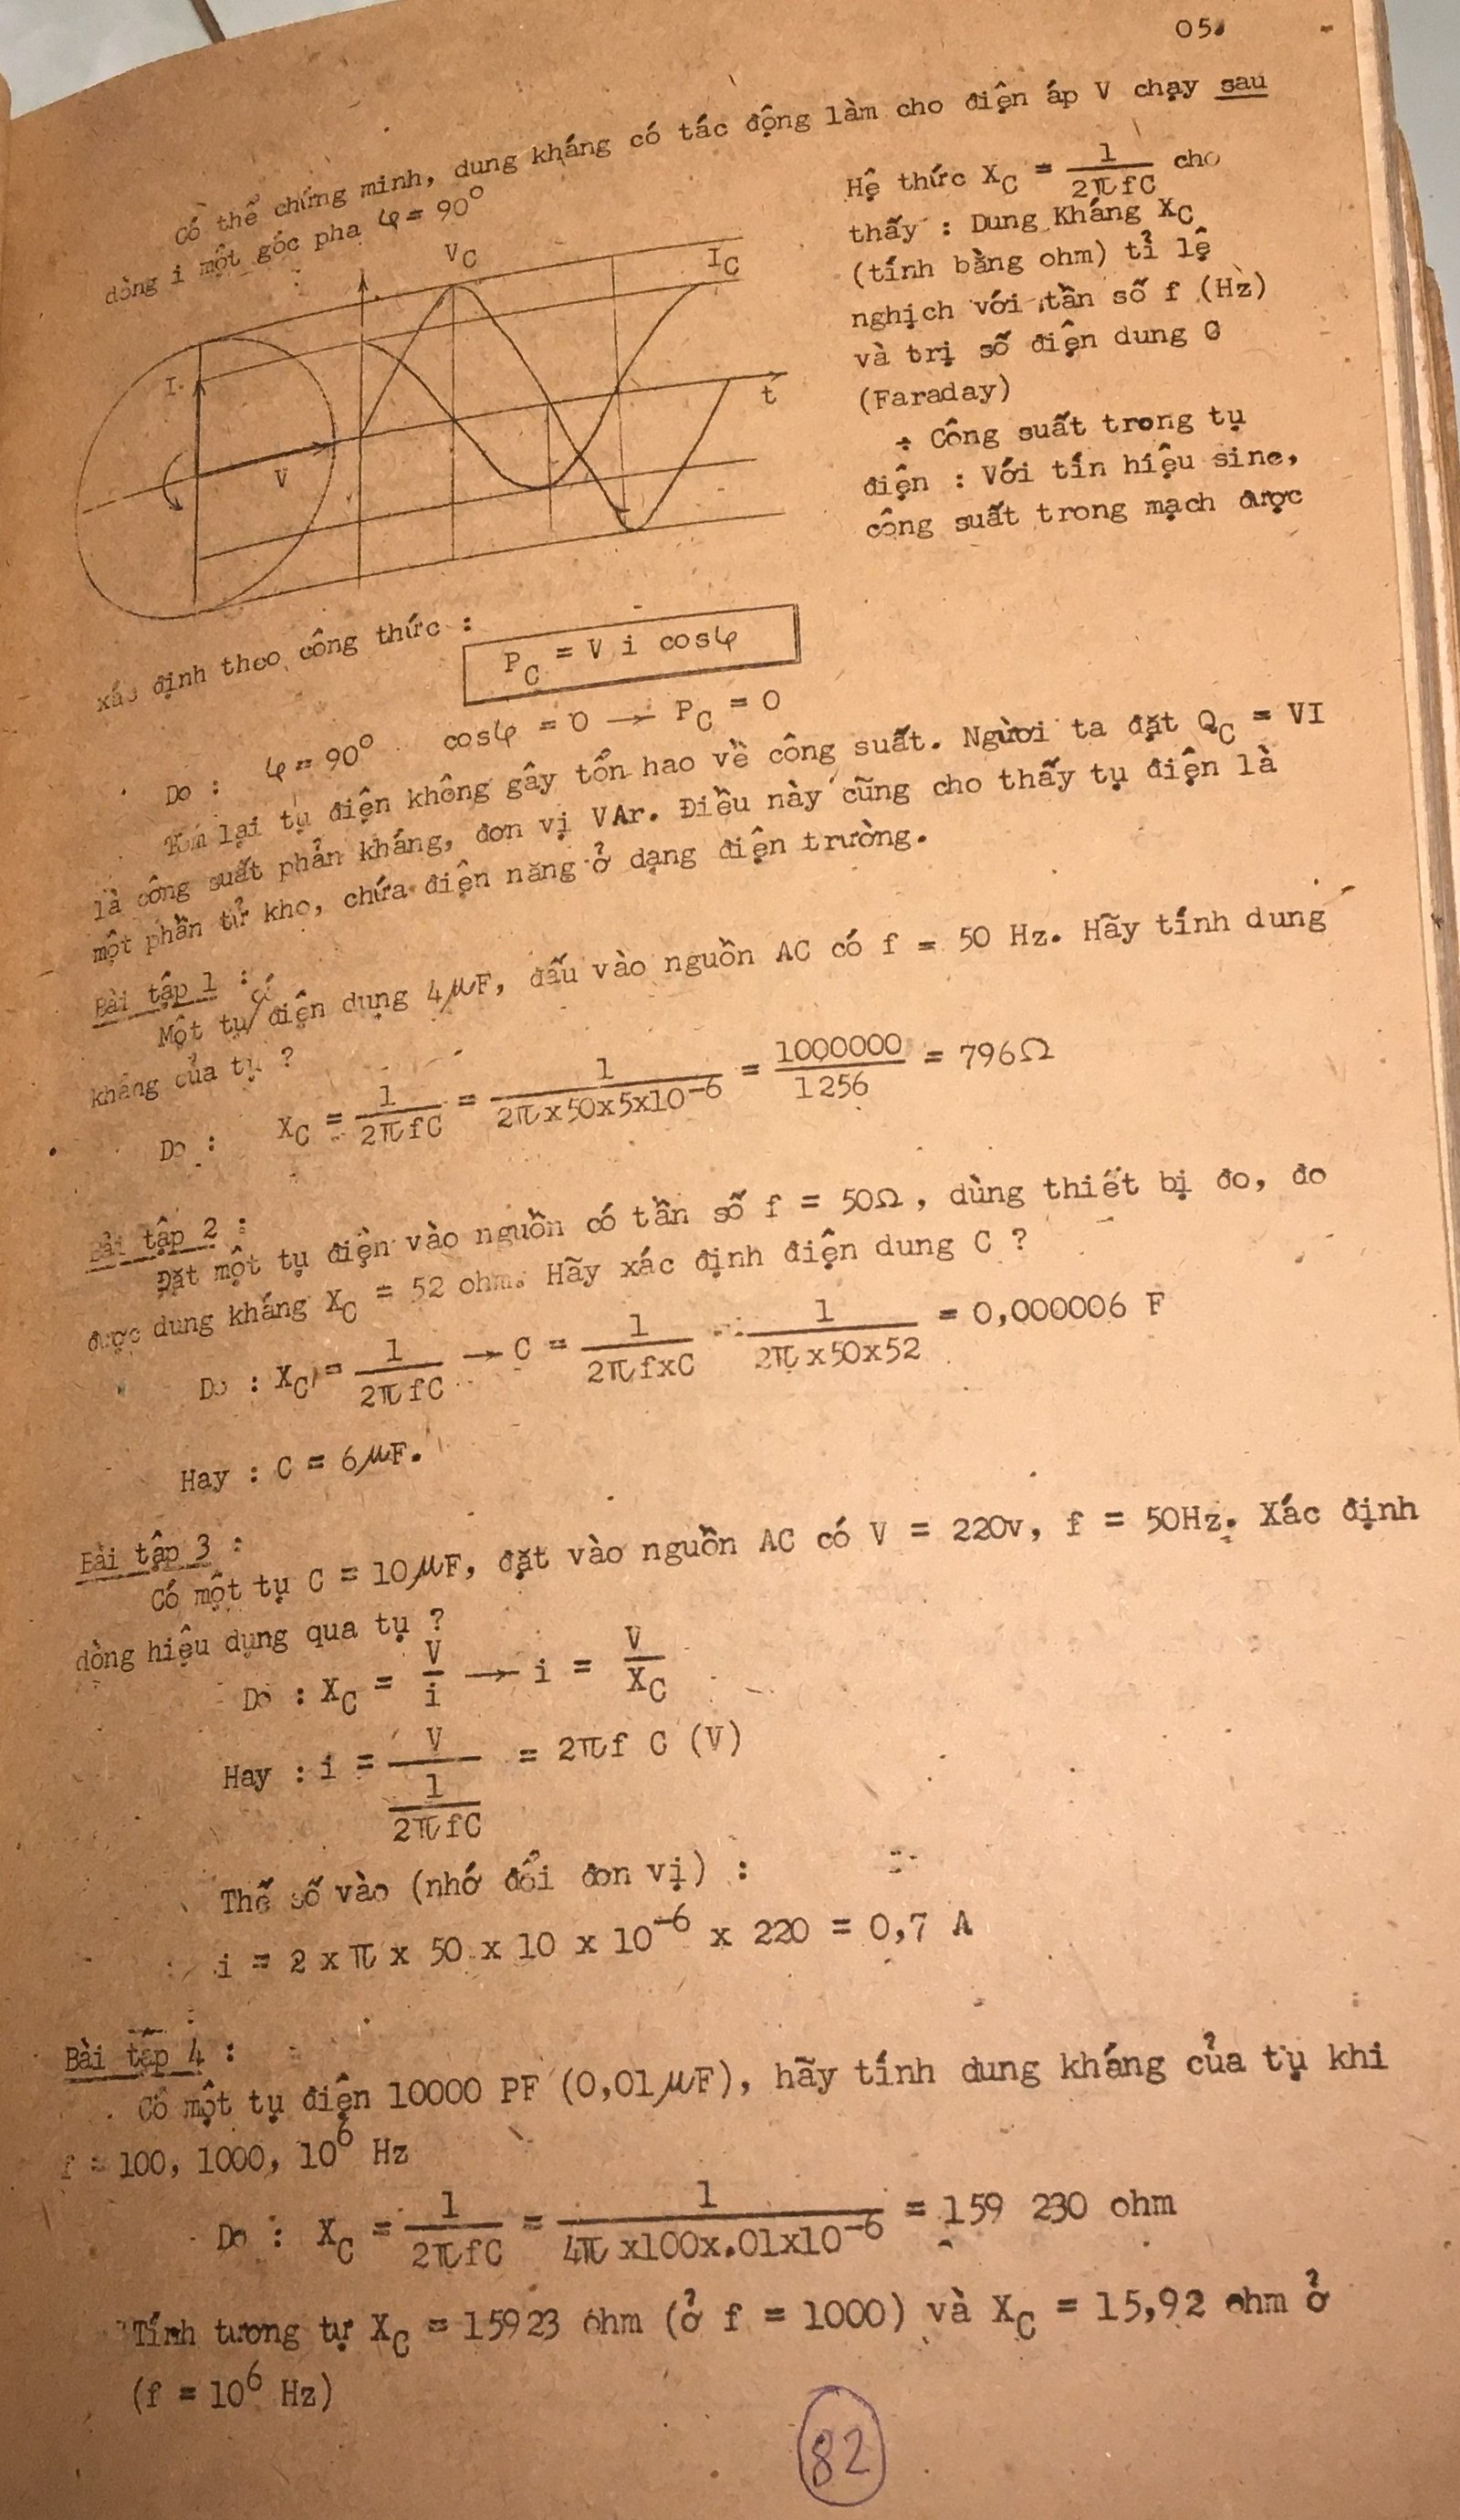 05.
Có thể chứng minh, dung kháng có tác động làm cho điện áp V chạy sau
dòng i một góc pha φ = 90°
V_C
I_C
I
V
t
Hệ thức X_C = 1/(2πfC) cho
thấy : Dung Kháng X_C
(tính bằng ohm) tỉ lệ
nghịch với tần số f (Hz)
và trị số điện dung C
(Faraday)
+ Công suất trong tụ
điện : Với tín hiệu sine,
công suất trong mạch được
xác định theo công thức :
P_C = V i cosφ
Do : φ = 90° cosφ = 0 → P_C = 0
Tóm lại tụ điện không gây tổn hao về công suất. Người ta đặt Q_C = VI
là công suất phản kháng, đơn vị VAr. Điều này cũng cho thấy tụ điện là
một phần tử kho, chứa điện năng ở dạng điện trường.
Bài tập 1 :
Một tụ có điện dung 4μF, đấu vào nguồn AC có f = 50 Hz. Hãy tính dung
kháng của tụ ?
Do : X_C = 1/(2πfC) = 1/(2πx50x5x10⁻⁶) = 1000000/1256 = 796Ω
Bài tập 2 :
Đặt một tụ điện vào nguồn có tần số f = 50Ω, dùng thiết bị đo, đo
được dung kháng X_C = 52 ohm. Hãy xác định điện dung C ?
Do : X_C = 1/(2πfC) → C = 1/(2πfxC) = 1/(2πx50x52) = 0,000006 F
Hay : C = 6μF.
Bài tập 3 :
Có một tụ C = 10μF, đặt vào nguồn AC có V = 220v, f = 50Hz. Xác định
dòng hiệu dụng qua tụ ?
Do : X_C = V/i → i = V/X_C
Hay : i = V/(1/(2πfC)) = 2πf C (V)
Thế số vào (nhớ đổi đơn vị) :
i = 2 x π x 50 x 10 x 10⁻⁶ x 220 = 0,7 A
Bài tập 4 :
Có một tụ điện 10000 PF (0,01μF), hãy tính dung kháng của tụ khi
f = 100, 1000, 10⁶ Hz
Do : X_C = 1/(2πfC) = 1/(4πx100x.01x10⁻⁶) = 159 230 ohm
Tính tương tự X_C = 15923 ohm (ở f = 1000) và X_C = 15,92 ohm ở
(f = 10⁶ Hz)
82